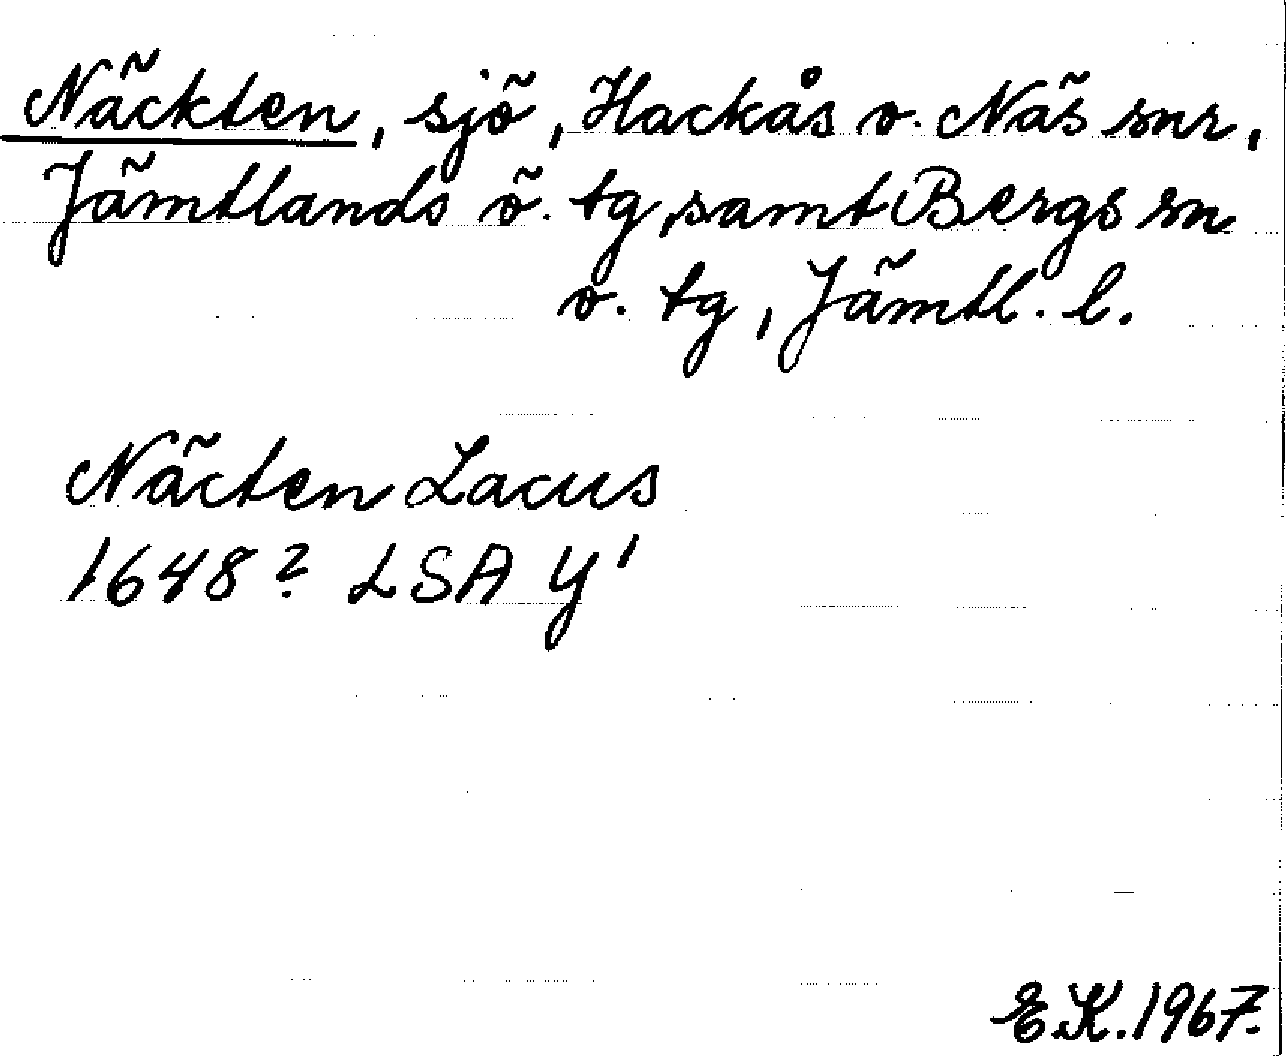 Näckten, sjö, Hackås o. Näs snr,
Jämtlands ö. tg, samt Bergs sn
o. tg, Jämtl. l.
Näcten Lacus
1648? LSA Y¹
E.K. 1967.